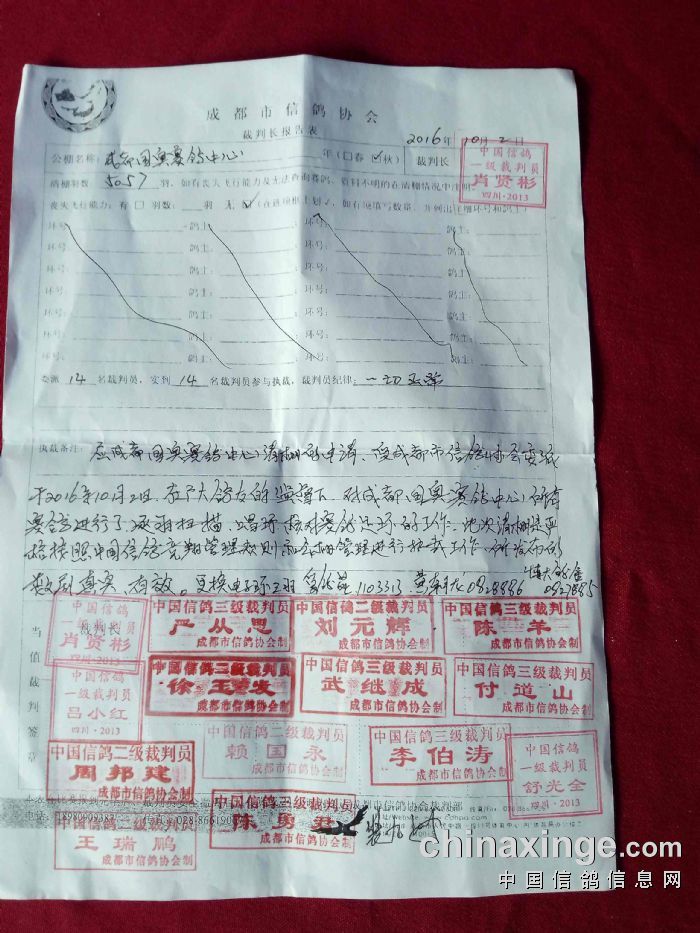 成都市信鸽协会
裁判长报告表
2016年10月2日
公棚名称：成都国奥赛鸽中心 年（□春 ☑秋） 裁判长
中国信鸽
一级裁判员
肖贤彬
四川·2013
清棚羽数 5057 羽，如有丧失飞行能力及无法查询赛鸽、资料不明的在清棚情况中注明。
丧失飞行能力：有 □ 羽数： 羽 无 ☑
环号： 鸽主： 环号： 鸽主： 环号： 鸽主：
环号： 鸽主： 环号： 鸽主： 环号： 鸽主：
环号： 鸽主： 环号： 鸽主： 环号： 鸽主：
环号： 鸽主： 环号： 鸽主： 环号： 鸽主：
环号： 鸽主： 环号： 鸽主： 环号： 鸽主：
环号： 鸽主： 环号： 鸽主： 环号： 鸽主：
环号： 鸽主： 环号： 鸽主： 环号： 鸽主：
委派 14 名裁判员，实到 14 名裁判员参与执裁，裁判员纪律：一切正常
执裁备注：应成都国奥赛鸽中心清棚的申请，受成都市信鸽协会委派
于2016年10月2日，在广大鸽友的监督下，对成都国奥赛鸽中心所有
赛鸽进行了逐羽扫描、唱环、核对赛鸽足环的工作。此次清棚是严
格按照中国信鸽竞翔管理规则和公棚管理进行执裁工作，所发布的
数据真实、有效。更换电子环三羽 1103313 0928886 0927885
当值裁判签章
裁判长
中国信鸽
一级裁判员
肖贤彬
四川·2013
中国信鸽三级裁判员
严从思
成都市信鸽协会制
中国信鸽二级裁判员
刘元辉
成都市信鸽协会制
中国信鸽三级裁判员
陈羊
成都市信鸽协会制
中国信鸽
一级裁判员
吕小红
四川·2013
中国信鸽二级裁判员
徐玉发
成都市信鸽协会制
中国信鸽三级裁判员
武继成
成都市信鸽协会制
中国信鸽三级裁判员
付道山
成都市信鸽协会制
中国信鸽二级裁判员
周邦建
成都市信鸽协会制
中国信鸽二级裁判员
赖国永
成都市信鸽协会制
中国信鸽三级裁判员
李伯涛
成都市信鸽协会制
中国信鸽
一级裁判员
舒光全
四川·2013
中国信鸽三级裁判员
王瑞鹏
成都市信鸽协会制
中国信鸽三级裁判员
陈勇君
成都市信鸽协会制
chinaxinge.com
中国信鸽信息网